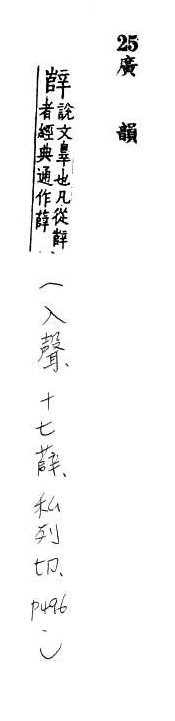 25 廣韻
辥
說文辠也凡從辥
者經典通作薛
(入聲、十七薛、私列切、p496)